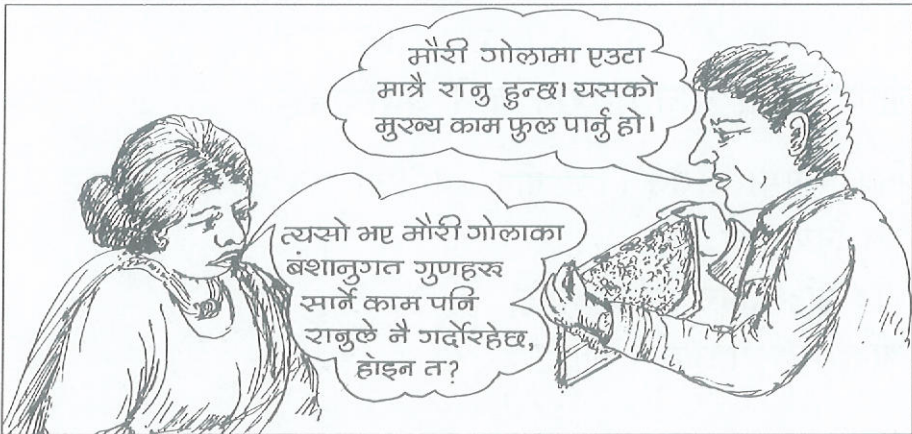 मौरी गोलामा एउटा
मात्रै रानु हुन्छ। यसको
मुख्य काम फुल पार्नु हो।
त्यसो भए मौरी गोलाका
बंशानुगत गुणहरु
सार्ने काम पनि
रानुले नै गर्दोरहेछ,
होइन त?